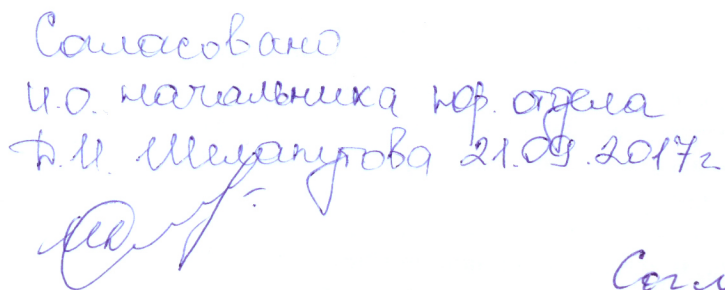 Согласовано
и.о. начальника юр. отдела
Д.И. Шелапутова 21.09.2017г
Согл